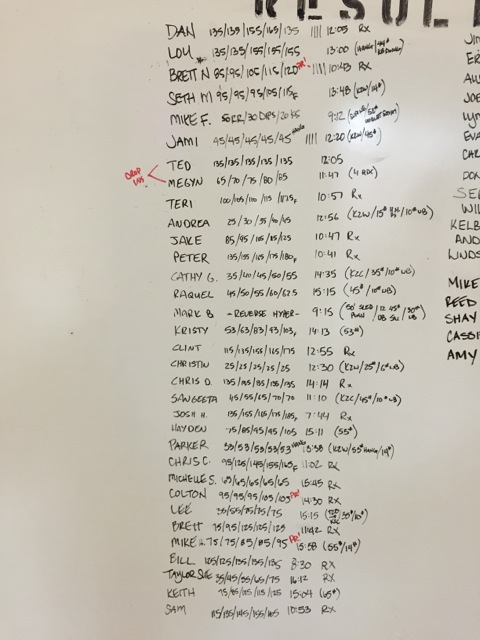 RESUL
DAN 135/135/155/165/135 |||| 12:05 Rx
LOU 135/135/155/155/155 13:00
BRETT N 85/95/105/115/120 PR! |||| 10:43 Rx
SETH M 95/95/95/105/115F 13:48 (K2W/14#)
MIKE F. 5RR/30 DIPS/20 KS 9:12
JAMI 45/45/45/45/45 HANG |||| 12:20 (K2W/45#)
DROP INS
TED 135/135/135/135/135 12:05
MEGYN 65/70/75/80/85 11:47
TERI 100/105/110/115/ 10:57 Rx
ANDREA 25/30/35/40/45 12:56
JAKE 85/95/115/125 10:47 Rx
PETER 135/155/165/175/180F 10:41 Rx
CATHY G. 35/40/45/50/55 14:35 (K2C/35#/10#WB)
RAQUEL 45/50/55/60/62.5 15:15 (45#/10#WB)
MARK B - REVERSE HYPER - 9:15
KRISTY 53/63/83/93/103F 14:13 (53#)
CLINT 115/135/155/165/175 12:55 Rx
CHRISTIN 25/25/25/25/25 12:30 (K2W/25#/6#WB)
CHRIS D. 135/185/135/135 14:14 Rx
SANGEETA 45/55/65/70/70 11:10 (K2C/45#/10#WB)
JOSH H. 135/155/165/175/185F 7:44 Rx
HAYDEN 75/85/95/95/105 15:11 (55#)
PARKER 53/53/53/53/53 HANG 13:38 (K2W/53#HANG/14#)
CHRIS C. 95/125/145/155/165F 11:02 RX
MICHELLE S. 65/65/65/65/65 15:45 RX
COLTON 95/95/95/105/105 PR! 14:30 RX
LEE 55/55/75/75/75 15:15
BRETT 75/95/125/125/125 11:42 RX
MIKE H. 75/75/85/85/95 PR! 15:58 (65#/14#)
BILL 105/125/135/135/135 8:30 RX
TAYLOR SUE 35/45/55/65/75 16:12 RX
KEITH 75/85/115/115/125 15:04 (65#)
SAM 115/135/145/155/165 10:53 RX
JIM
ER
AL
JOE
LYN
EVA
CHR
DON
SE
WIL
KELB
AND
LINDS
MIKE
REED
SHAY
CASSI
AMY